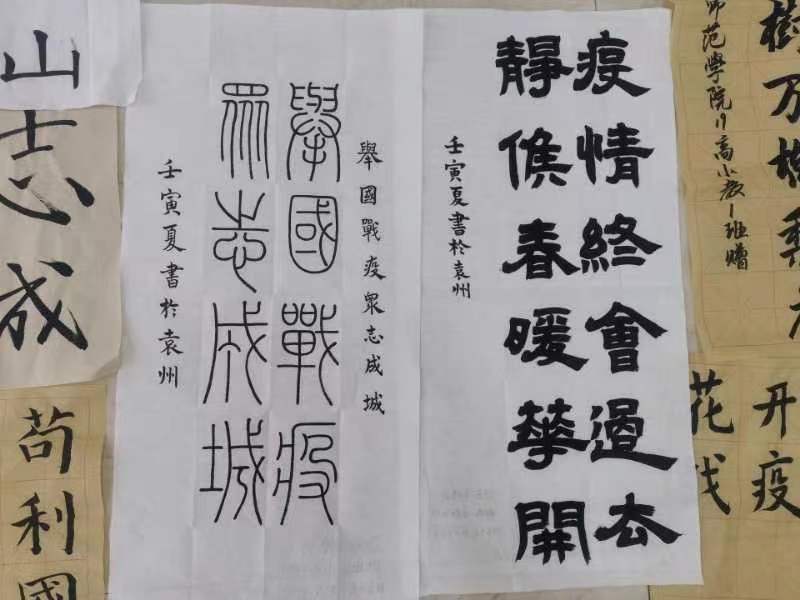 樹万樹梨
范學院19高小教1班赠
开疫
花
疫情終會過去
靜候春暖華開
壬寅夏書於袁州
舉國戰疫眾志成城
舉國戰疫
眾志成城
壬寅夏書於袁州
山
志成
苟利國